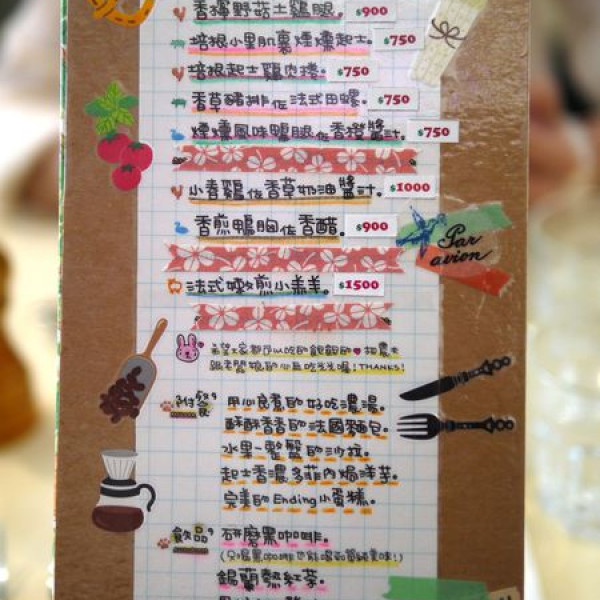 香橙野菇土雞腿。 $900
培根小里肌裏煙燻起士。 $750
培根起士雞肉捲。 $750
香草豬排佐法式田螺。 $750
煙燻風味鴨腿佐香橙醬汁。 $750
小春雞佐香草奶油醬汁。 $1000
香煎鴨胸佐香醋。 $900
法式嫩煎小羔羊。 $1500
Par avion
希望大家都可以吃的飽飽的
THANKS!
附餐
用心良煮的好吃濃湯。
酥酥香香的法國麵包。
水果一整盤的沙拉。
起士香濃多菲內焗洋芋。
完美的Ending小蛋糕。
飲品
研磨黑咖啡。
錫蘭熱紅茶。